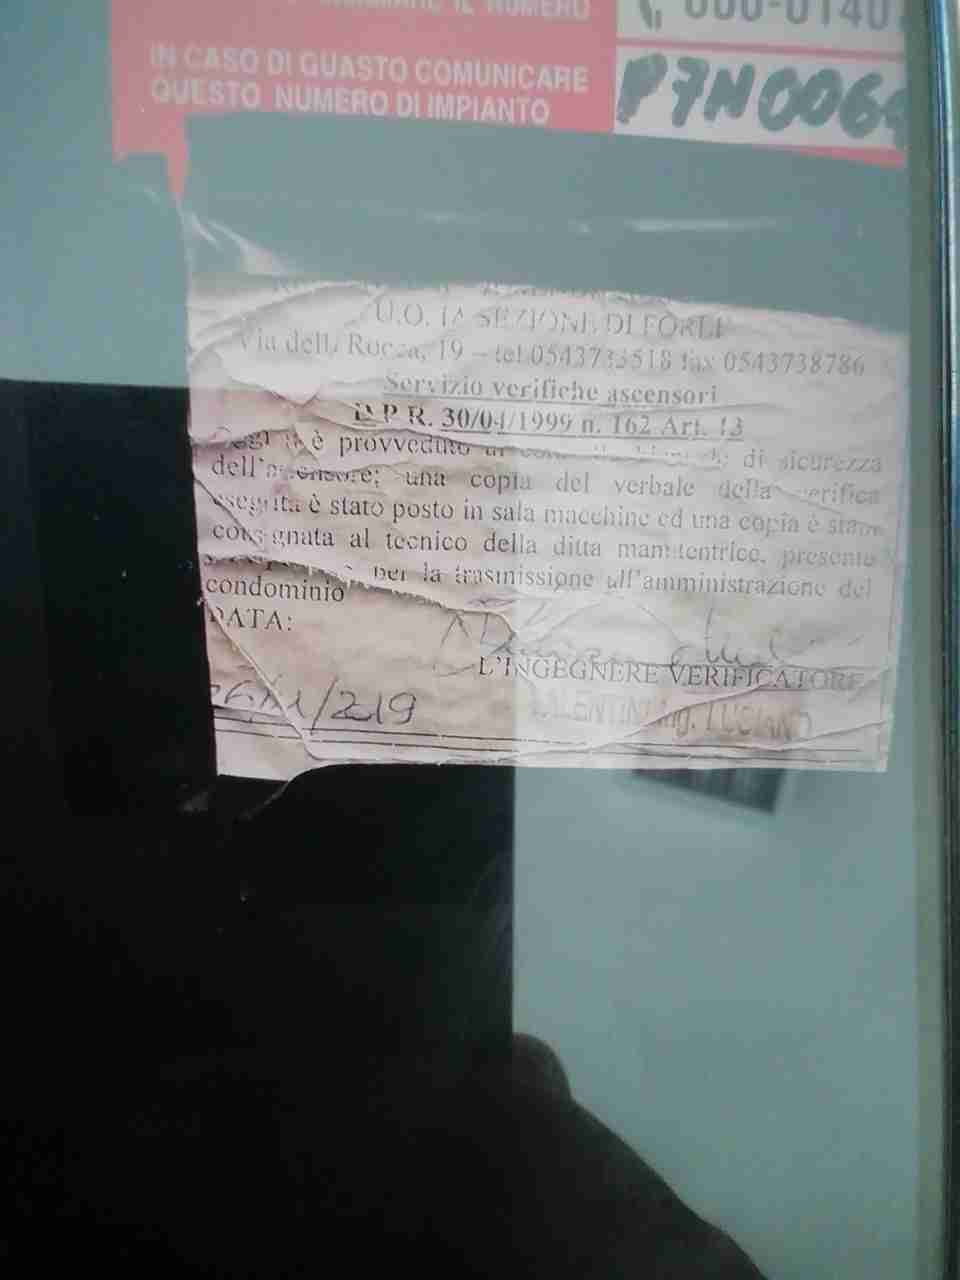 IL NUMERO
IN CASO DI GUASTO COMUNICARE
QUESTO NUMERO DI IMPIANTO
P7N006
U.O. IA SEZIONE DI FORLI'
Via della Rocca, 19 – tel 0543733518 fax 0543738786
Servizio verifiche ascensori
D.P.R. 30/04/1999 n. 162 Art. 13
è provveduto di sicurezza
dell'ascensore; una copia del verbale della verifica
eseguita è stato posto in sala macchine ed una copia è stata
consegnata al tecnico della ditta manutentrice, presente
per la trasmissione all'amministrazione del
condominio
DATA:
L'INGEGNERE VERIFICATORE
VALENTINI Ing. LUCIANO
/219